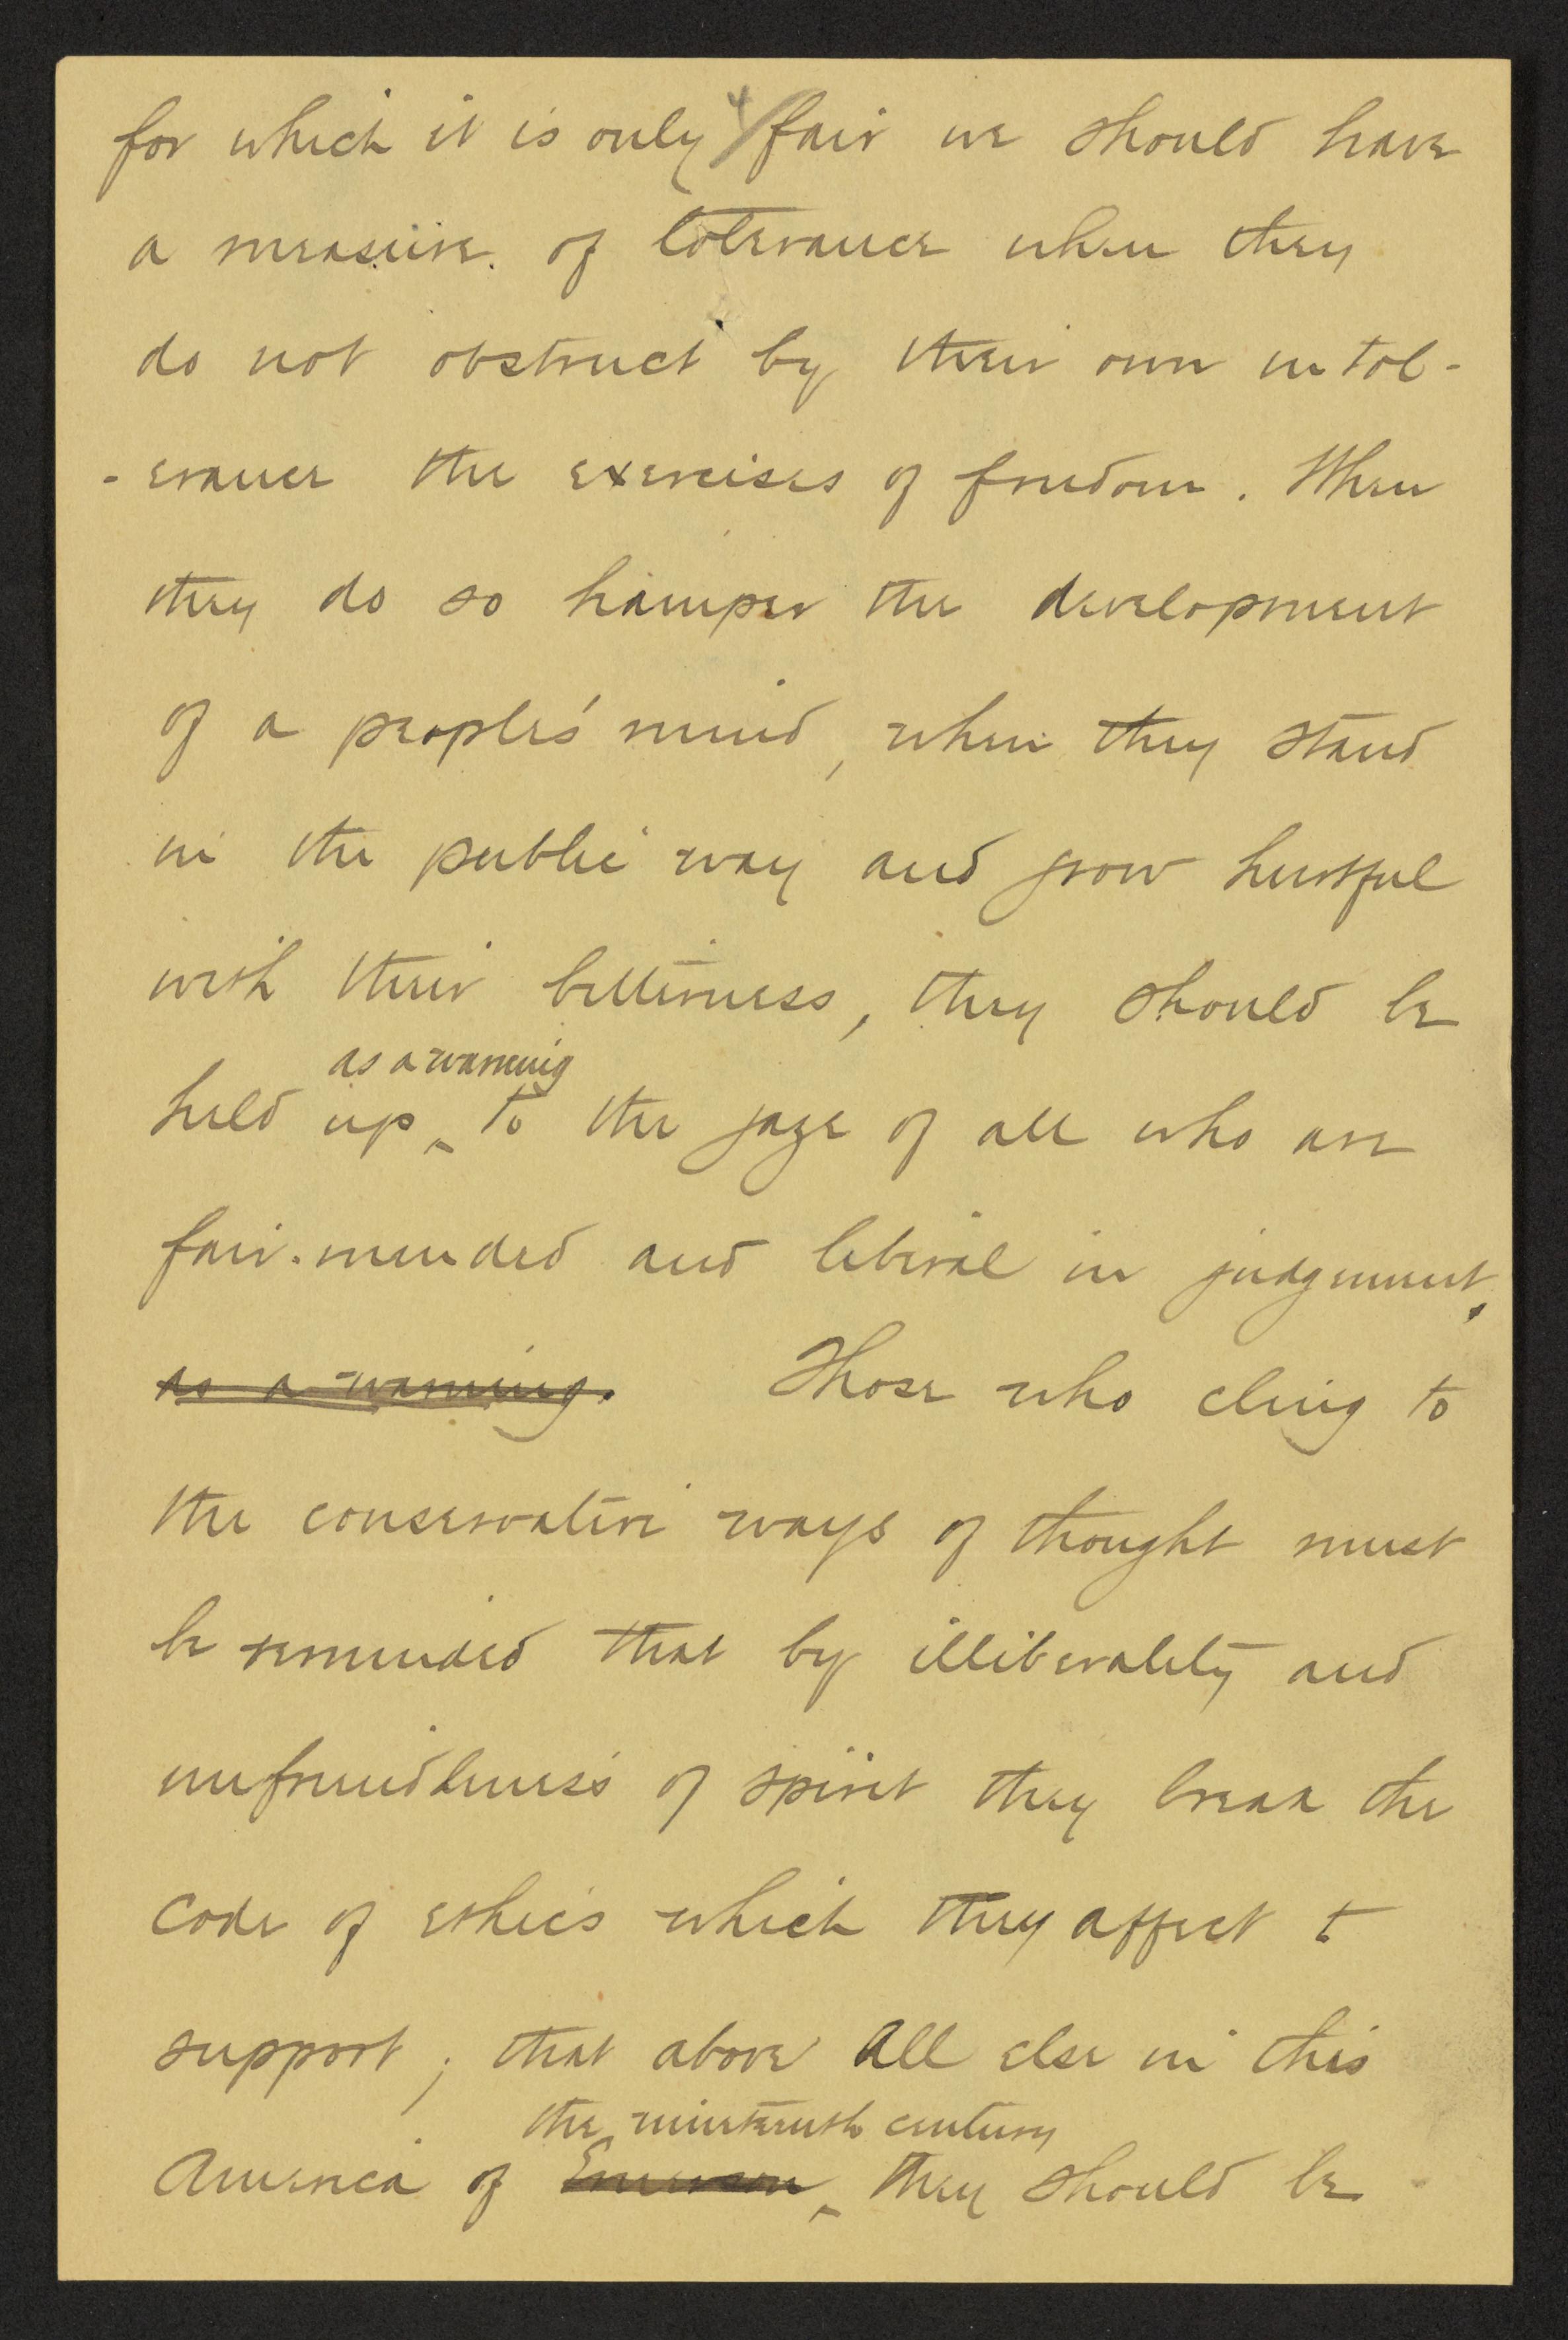 for which it is only 4/ fair we should have
a measure of tolerance when they
do not obstruct by their own intol-
-erance the exercises of freedom. When
they do so hamper the development
of a people's mind, when they stand
in the public way and grow hurtful
with their bitterness, they should be
as a warning
held up ‸ to the gaze of all who are
fair-minded and liberal in judgement.
as a warning. Those who cling to
the conservative ways of thought must
be reminded that by illiberality and
unfriendliness of spirit they break the
code of ethics which they affect t
support; that above all else in this
the nineteenth century
America of Emerson ‸ they should be